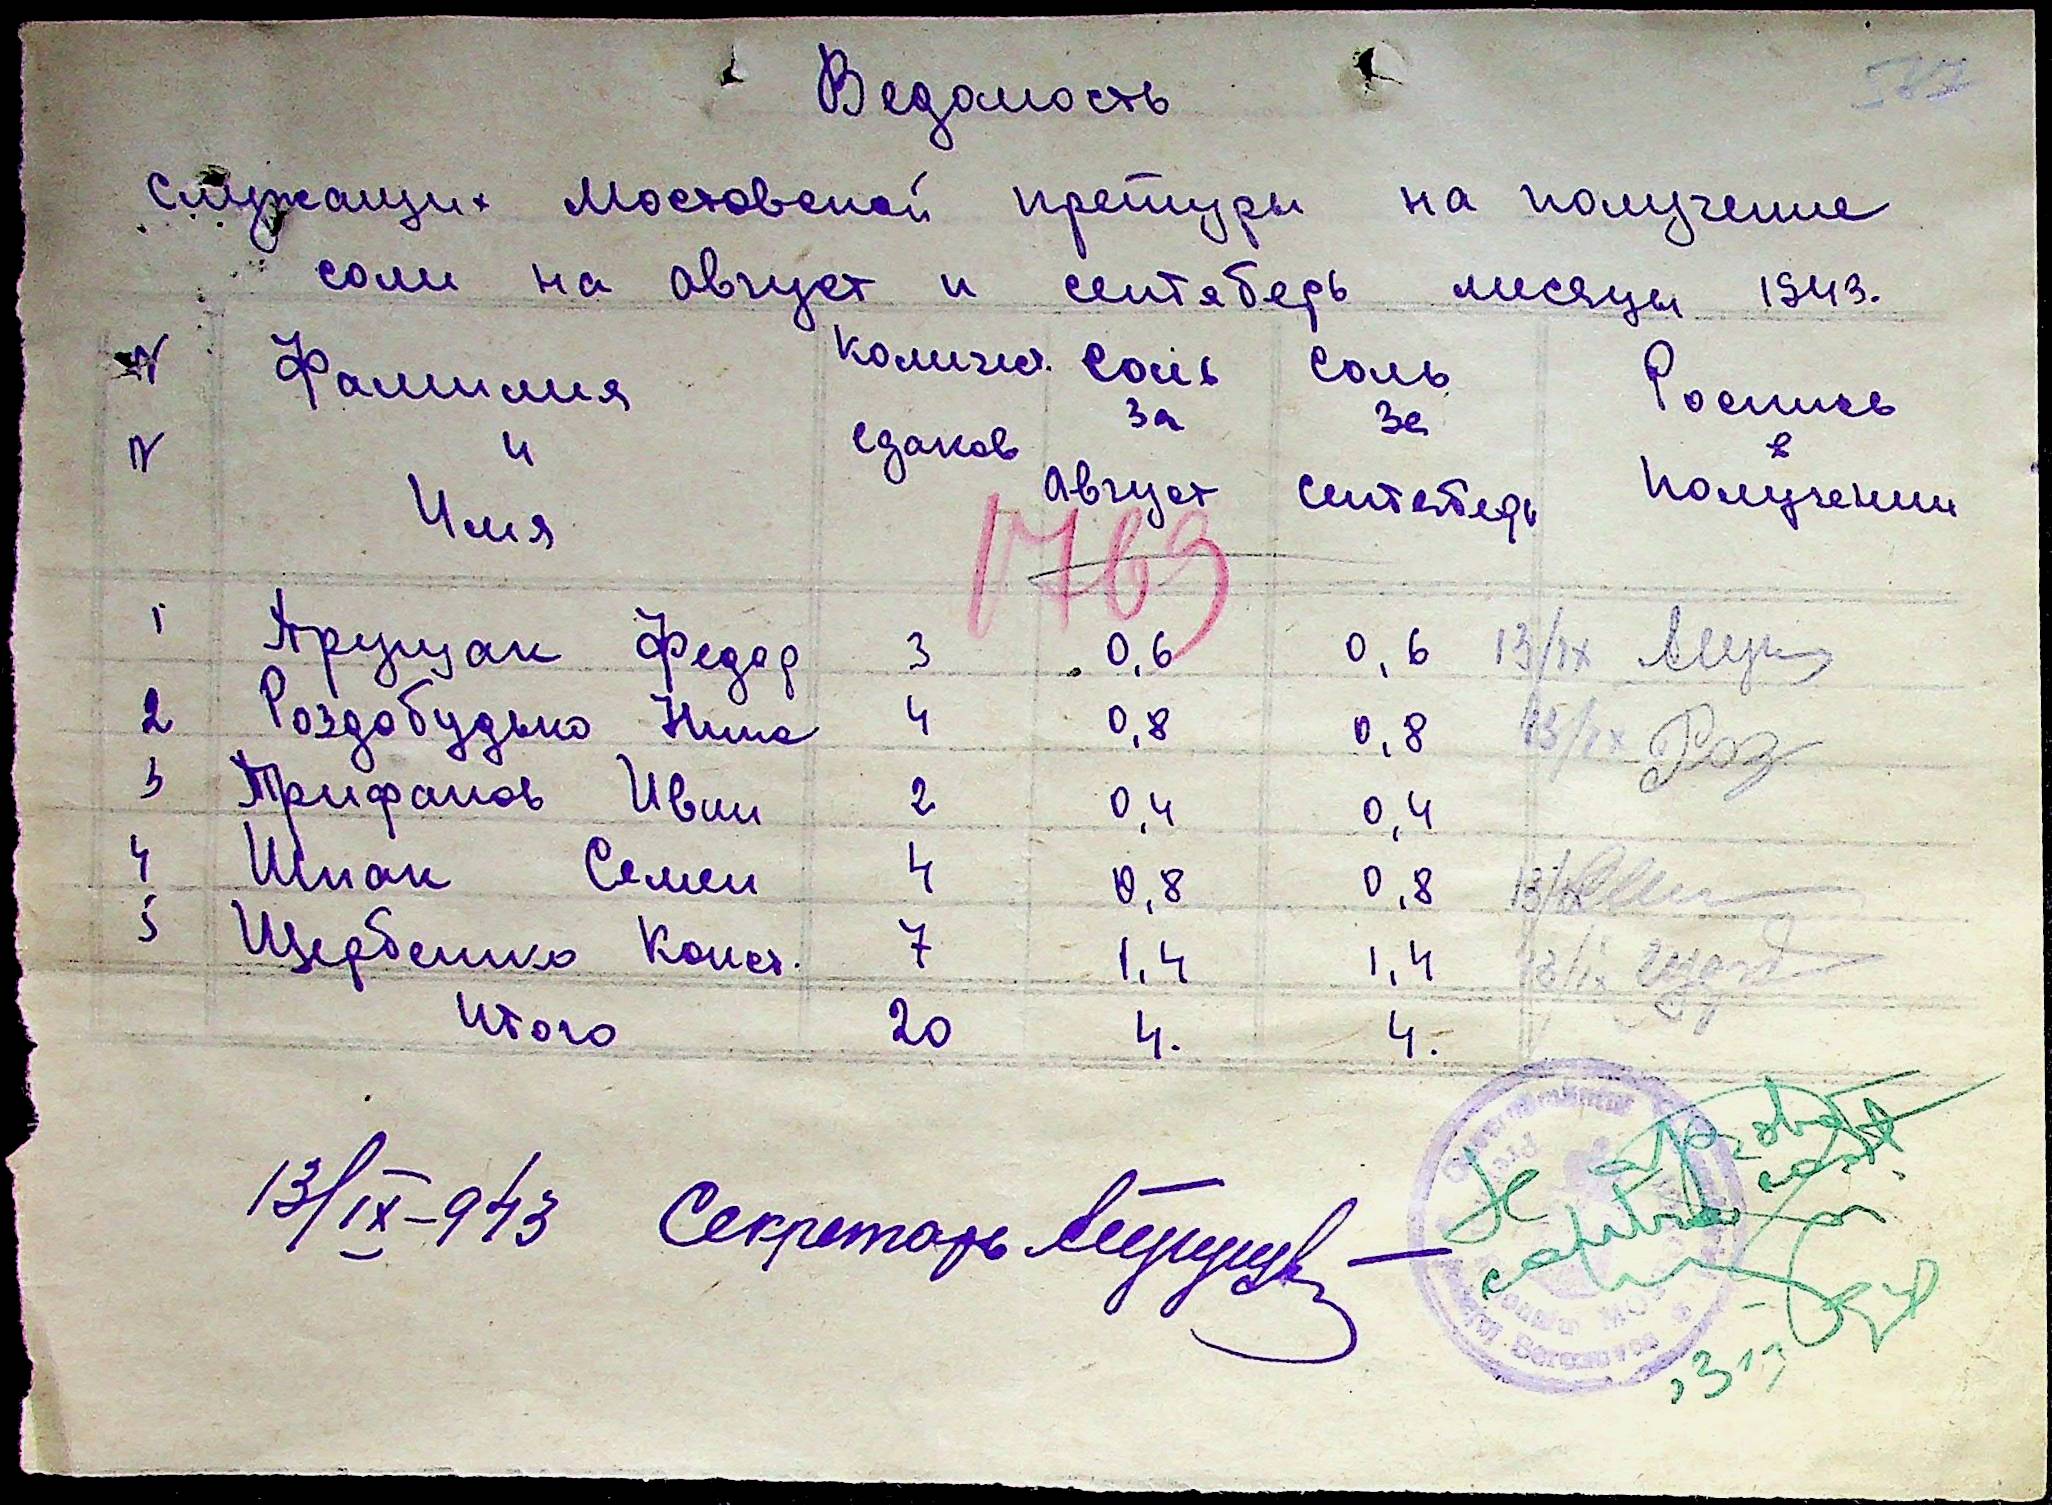 Ведомость
служащих Мостовской претуры на получение
соли на август и сентябрь месяцы 1943.
N N Фамилия и Имя Количест. едаков Соль за август Соль за сентебрь Роспись в получении
1769
1 Прущак Федор 3 0,6 0,6 13/IX
2 Роздобудько Нина 4 0,8 0,8 13/IX Роз
3 Трифанов Иван 2 0,4 0,4
4 Шпак Семен 4 0,8 0,8 13/IX
5 Щербенко Конст. 7 1,4 1,4 13/IX
Итого 20 4. 4.
13/IX-943 Секретарь